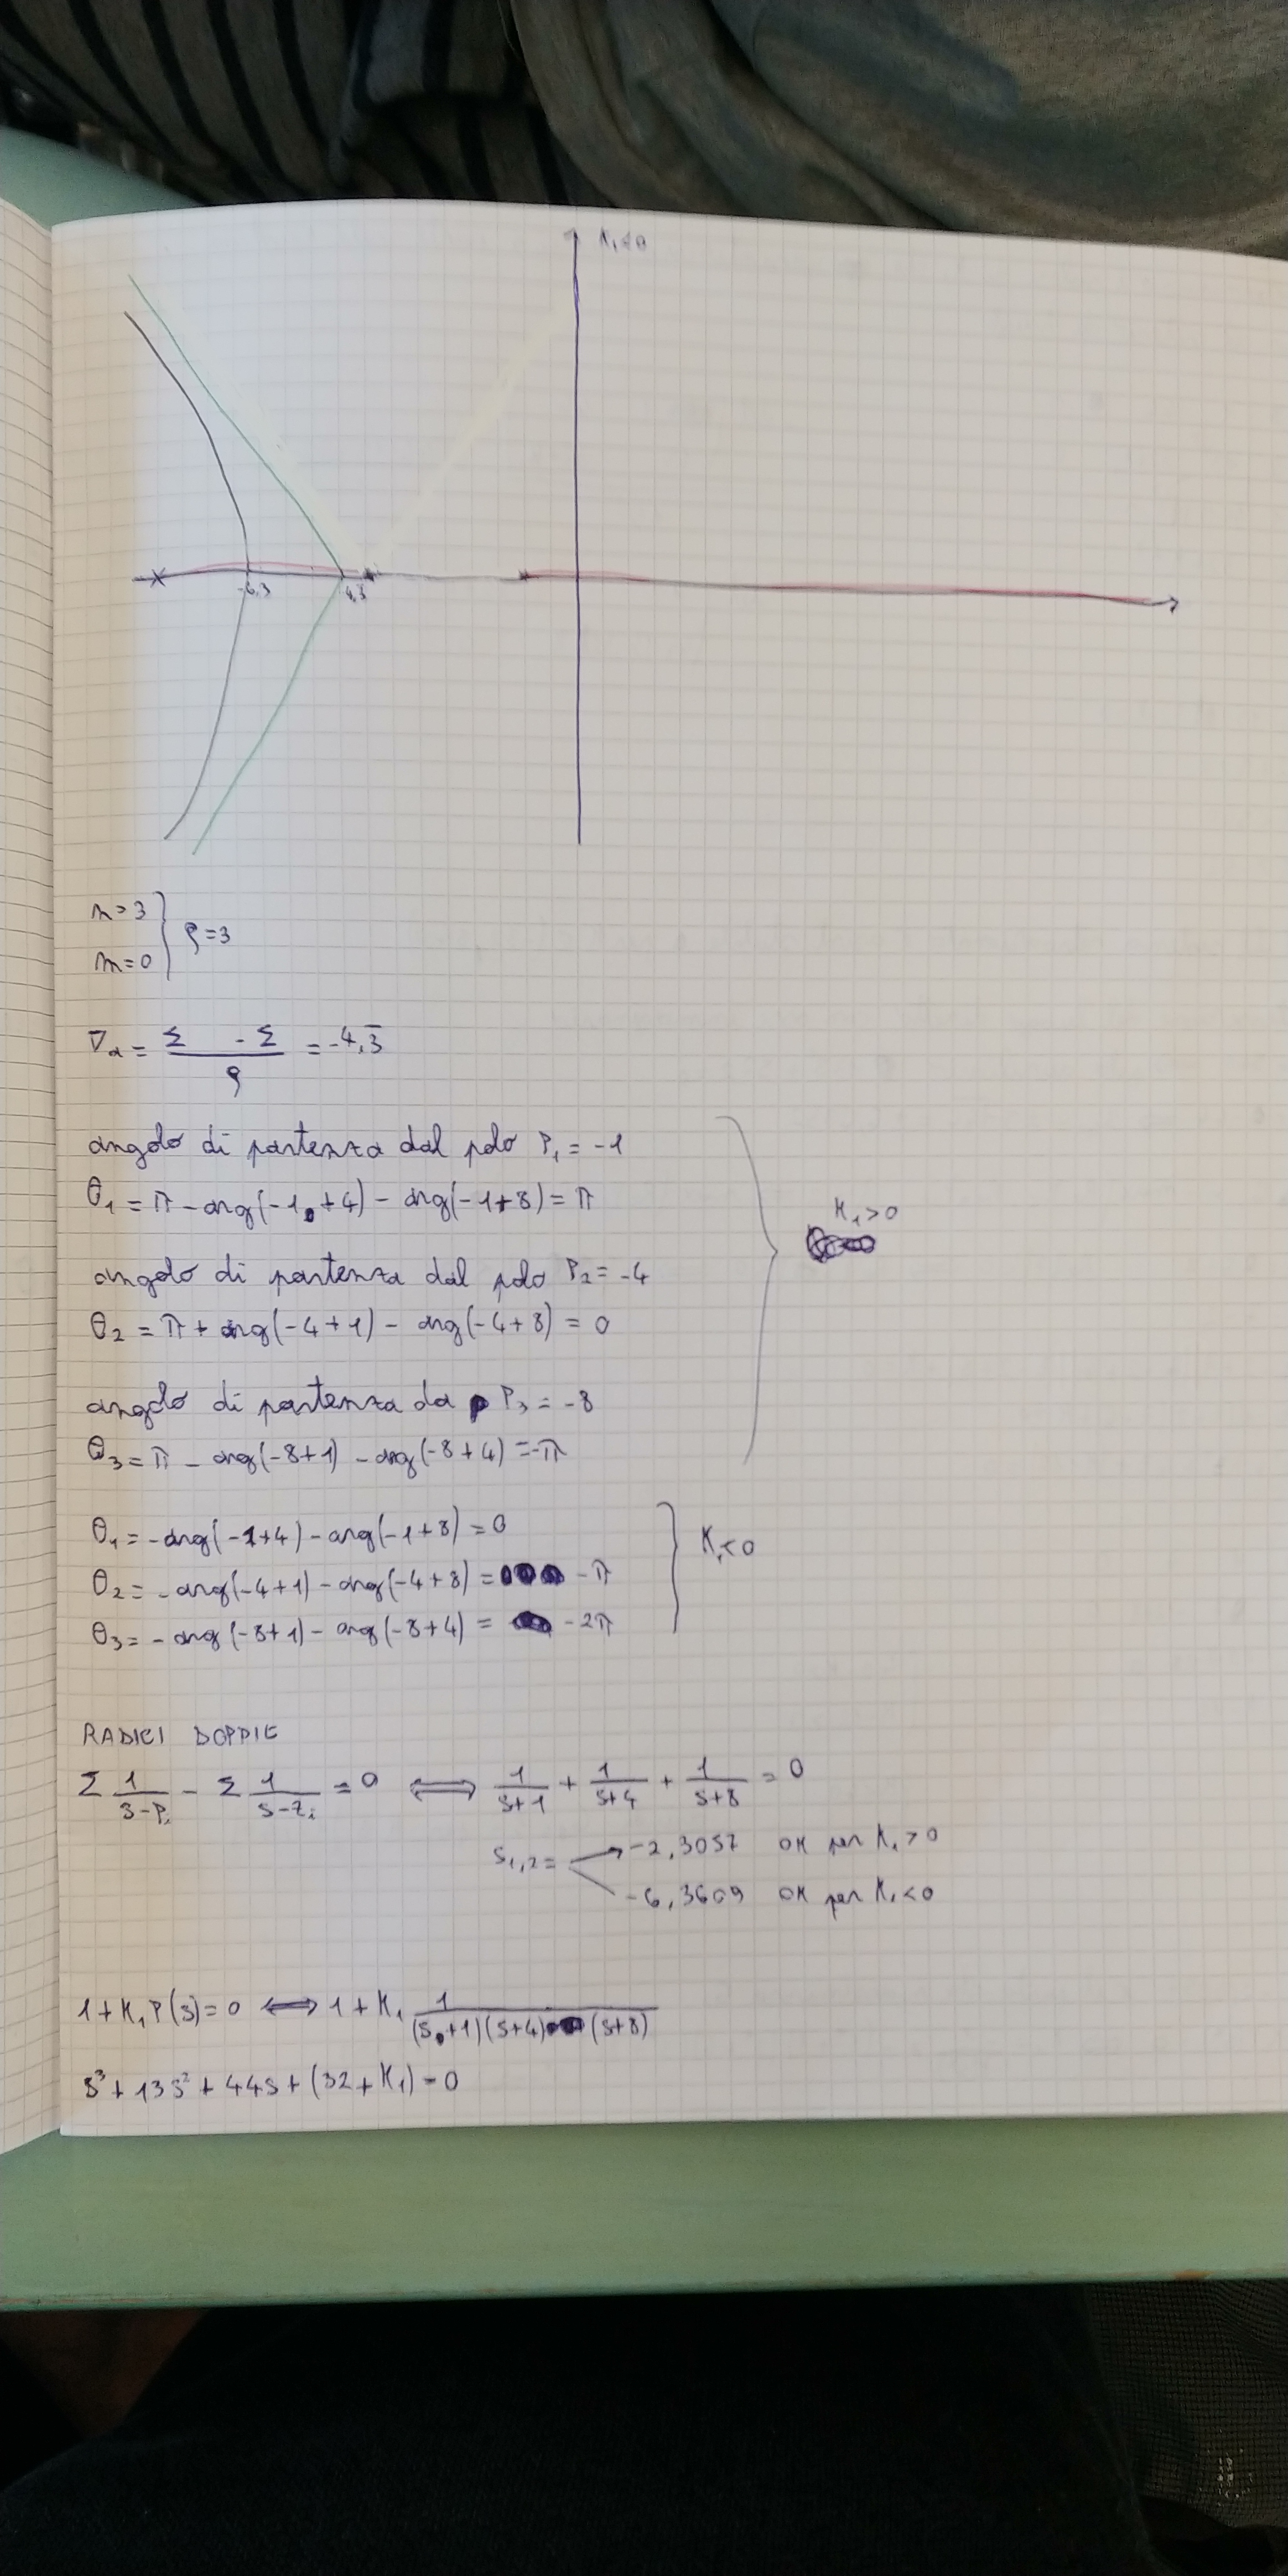 K₁<0
-6,3 4,3
n=3
m=0
ρ=3
σₐ = (Σ - Σ)/ρ = -4,3̅
angolo di partenza dal polo P₁ = -1
θ₁ = π - arg(-1+4) - arg(-1+8) = π
K₁>0
angolo di partenza dal polo P₂ = -4
θ₂ = π + arg(-4+1) - arg(-4+8) = 0
angolo di partenza da P₃ = -8
θ₃ = π - arg(-8+1) - arg(-8+4) = -π
θ₁ = - arg(-1+4) - arg(-1+8) = 0
θ₂ = - arg(-4+1) - arg(-4+8) = -π
θ₃ = - arg(-8+1) - arg(-8+4) = -2π
K₁<0
RADICI DOPPIE
Σ 1/(s-Pᵢ) - Σ 1/(s-zᵢ) = 0 ⟺ 1/(s+1) + 1/(s+4) + 1/(s+8) = 0
s₁,₂ = -2,3057 OK per K₁>0
-6,3609 OK per K₁<0
1+K₁P(s)=0 ⟺ 1+K₁ 1/((s+1)(s+4)(s+8))
s³+13s²+44s+(32+K₁)=0